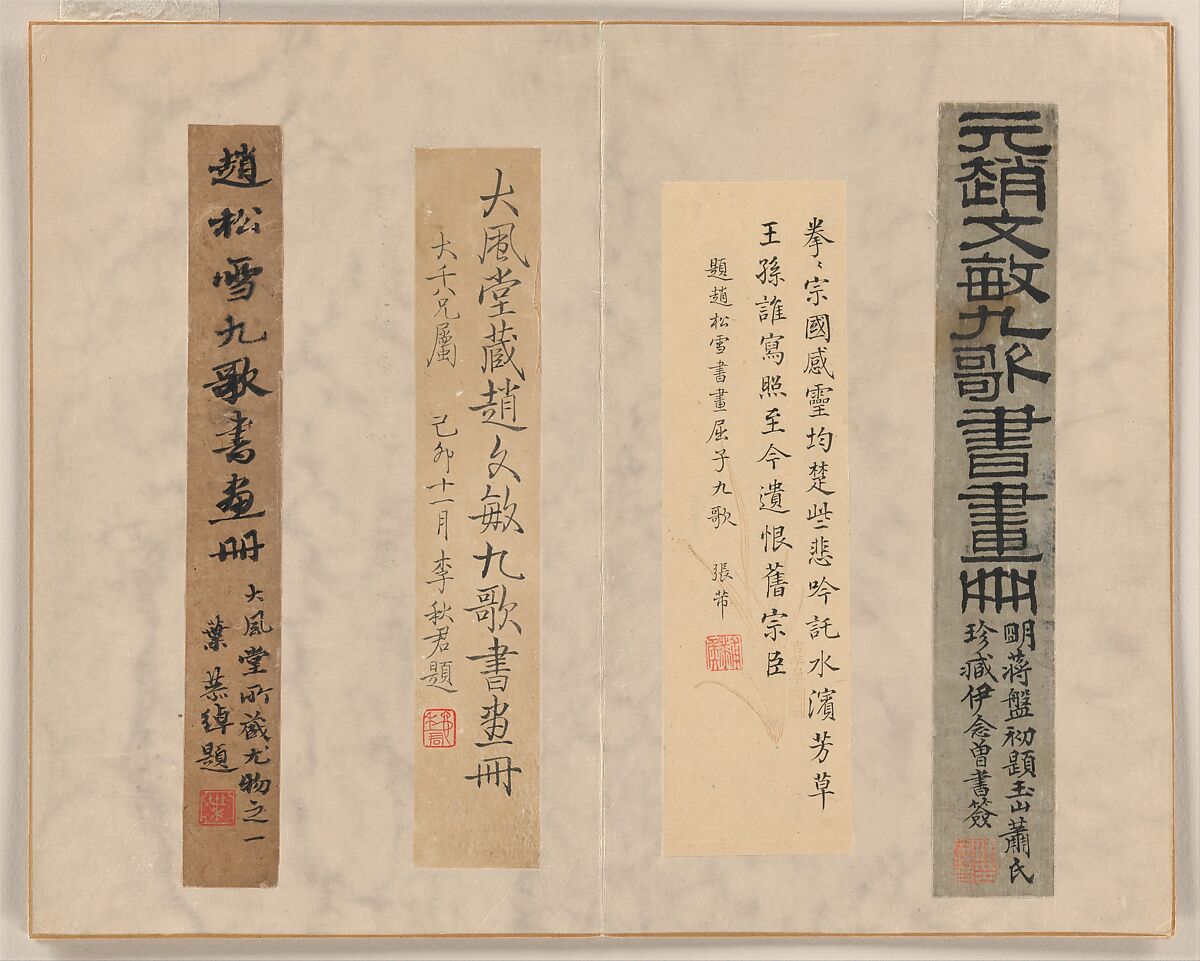 元趙文敏九歌書畫冊
明蔣盤初題玉山蕭氏
珍臧伊念曾書簽
拳〻宗國感靈均楚些悲吟託水濱芳草
王孫誰寫照至今遺恨舊宗臣
題趙松雪書畫屈子九歌 張芾
大風堂藏趙文敏九歌書画冊
大千兄屬 己卯十一月李秋君題
趙松雪九歌書画冊
大風堂所藏尤物之一
葉恭綽題